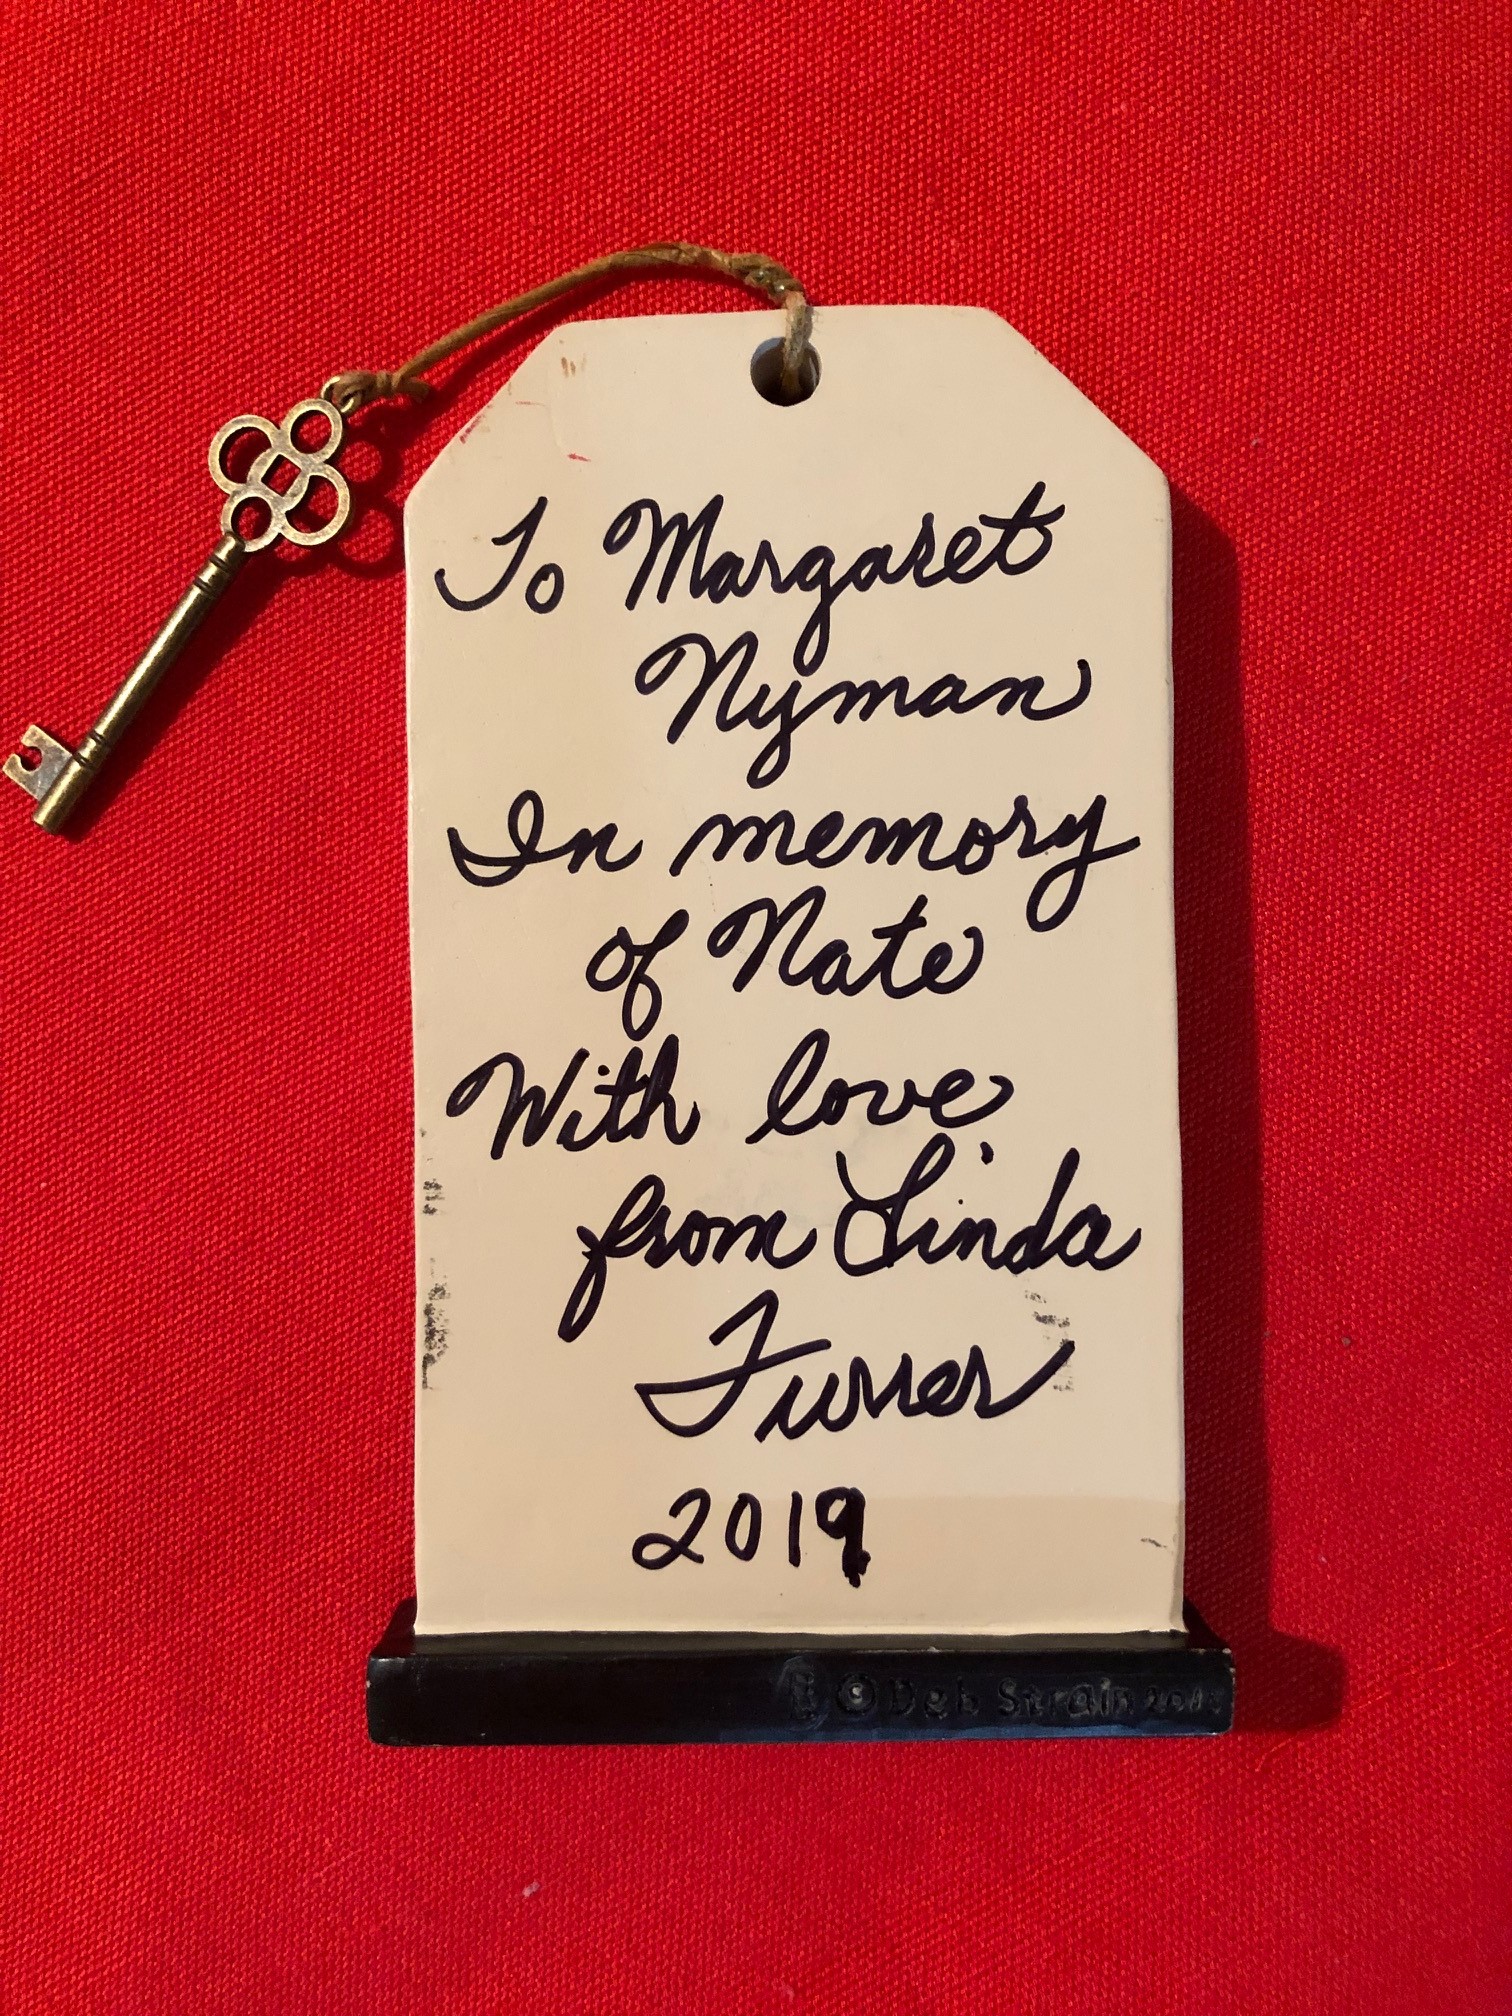 To Margaret
Nyman
In memory
of Nate
With love
from Linda
Furrer
2019
© Deb Strain